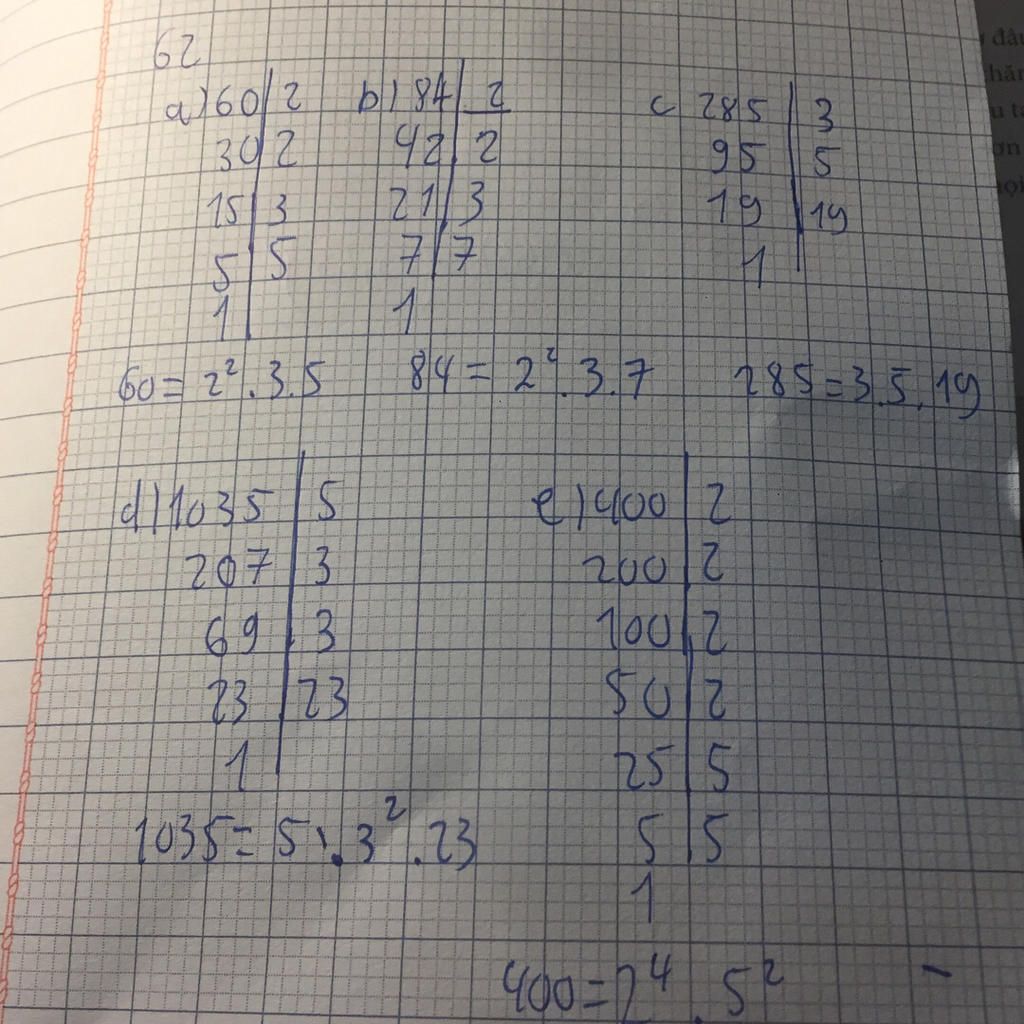 62
a) 60 | 2 b) 84 | 2 c 285 | 3
30 | 2 42 | 2 95 | 5
15 | 3 21 | 3 19 | 19
5 | 5 7 | 7 1 |
1 | 1
60 = 2² . 3 . 5 84 = 2² . 3 . 7 285 = 3 . 5 . 19
d) 1035 | 5 e) 400 | 2
207 | 3 200 | 2
69 | 3 100 | 2
23 | 23 50 | 2
1 | 25 | 5
1035 = 5 . 3² . 23 5 | 5
1
400 = 2⁴ . 5²
đâu